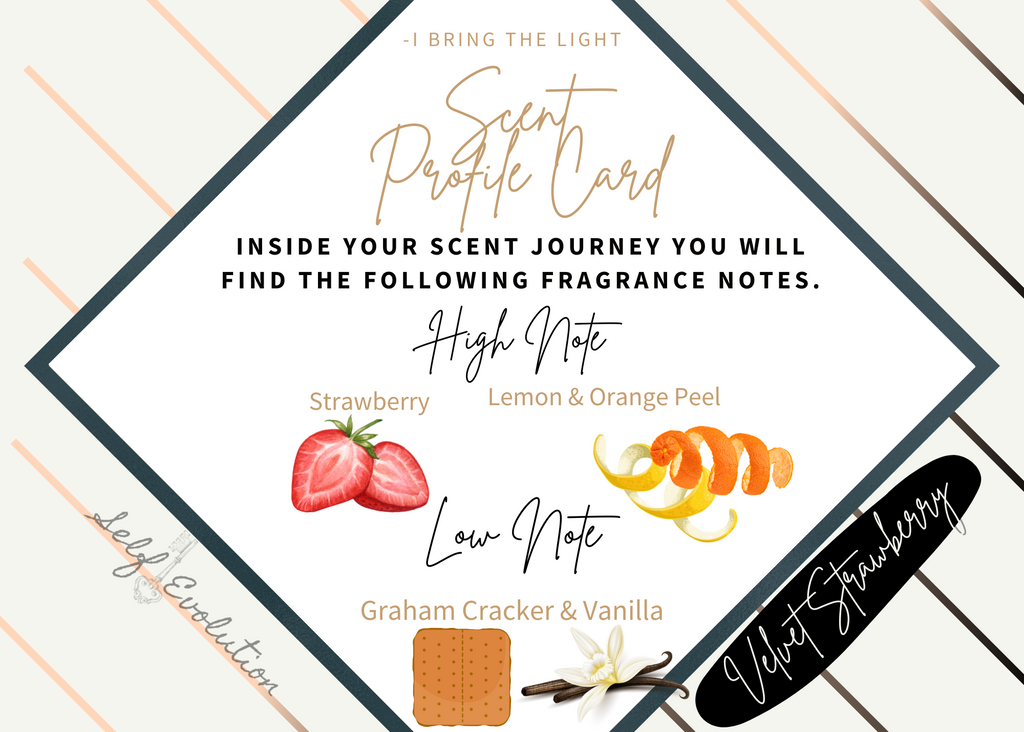 -I BRING THE LIGHT
Scent
Profile Card
INSIDE YOUR SCENT JOURNEY YOU WILL
FIND THE FOLLOWING FRAGRANCE NOTES.
High Note
Strawberry
Lemon & Orange Peel
Low Note
Graham Cracker & Vanilla
Self Evolution
Velvet Strawberry